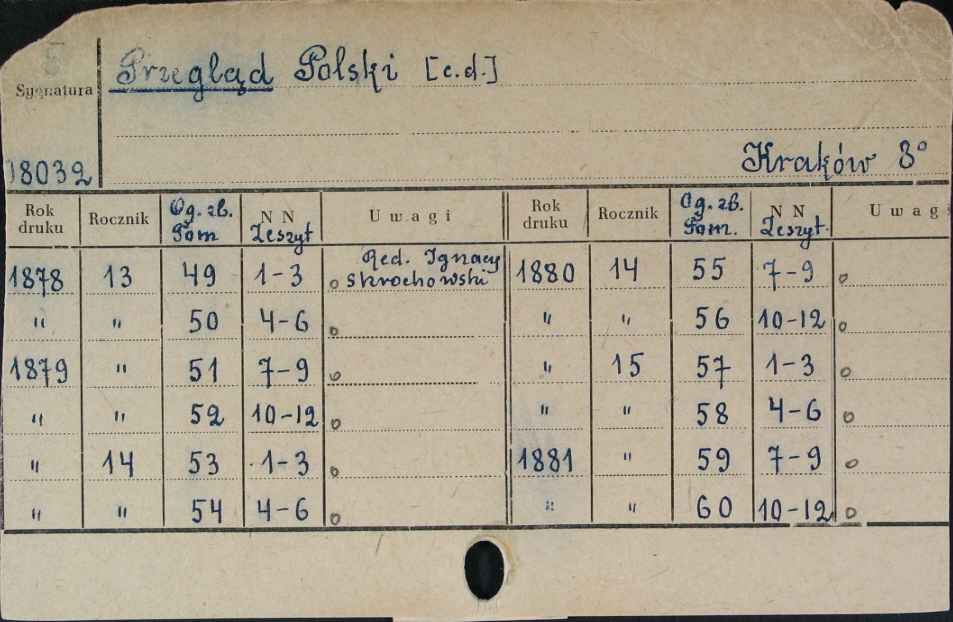 Przegląd Polski [c.d.]
Sygnatura
18032
Kraków 8°
Rok druku Rocznik Og. zb. Tom N N Zeszyt Uwagi Rok druku Rocznik Og. zb. Tom. N N Zeszyt. Uwagi
1878 13 49 1-3 Red. Ignacy Skrochowski 1880 14 55 7-9
" " 50 4-6 " " 56 10-12
1879 " 51 7-9 " 15 57 1-3
" " 52 10-12 " " 58 4-6
" 14 53 1-3 1881 " 59 7-9
" " 54 4-6 " " 60 10-12